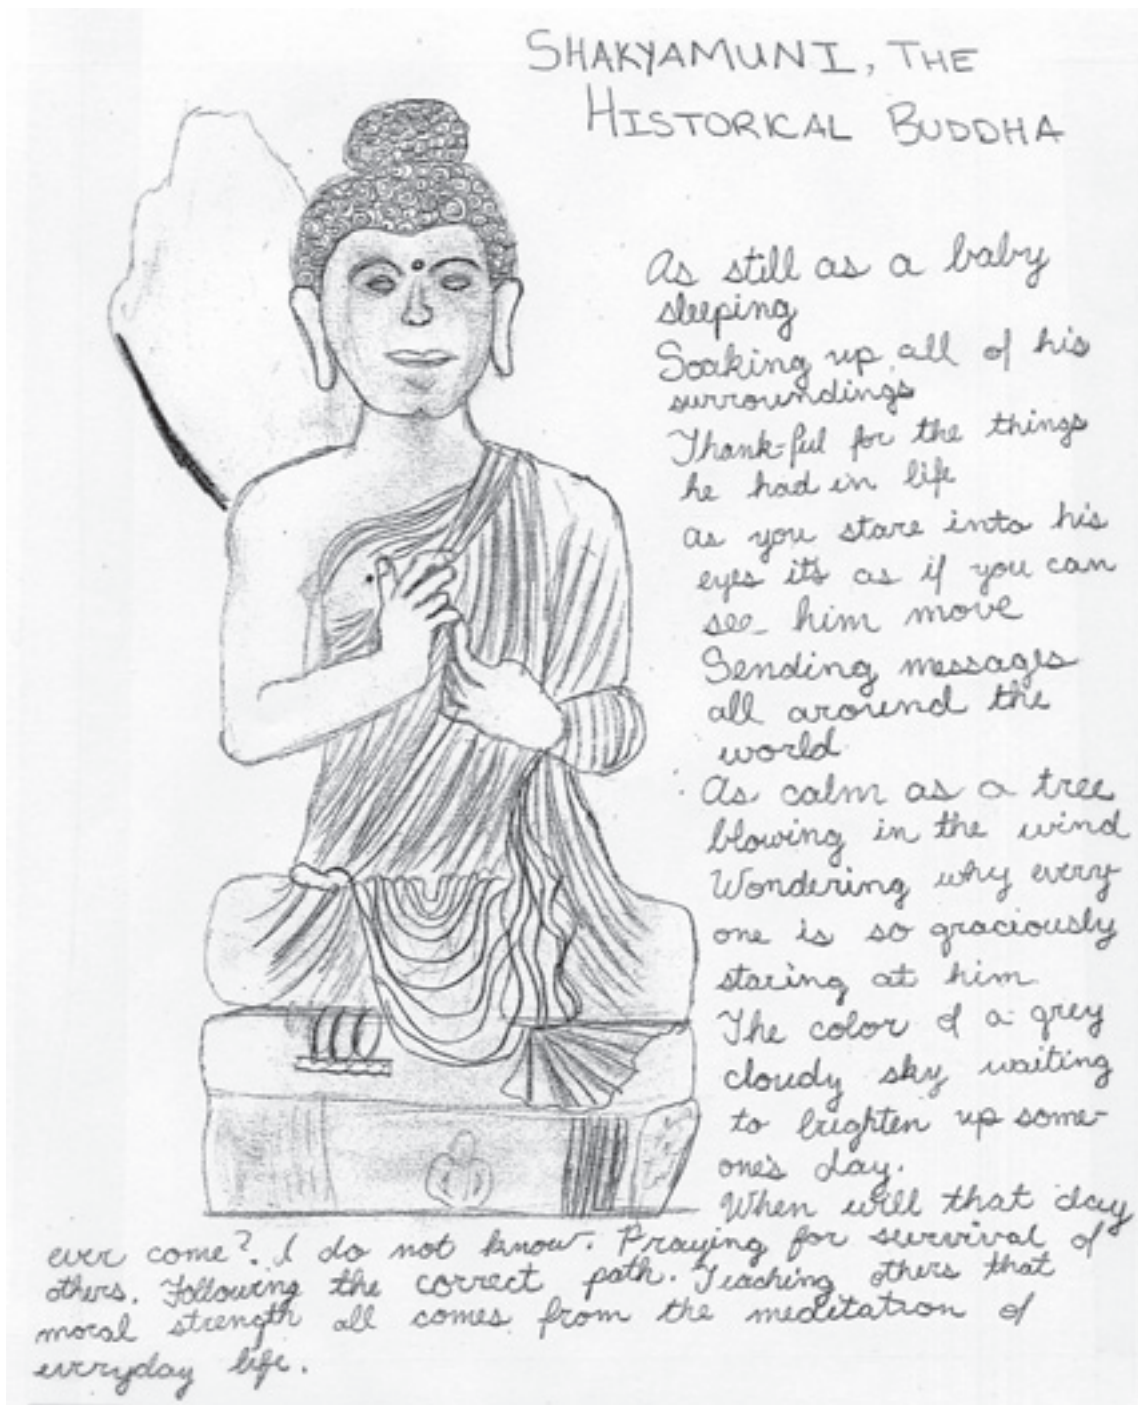 SHAKYAMUNI, THE
HISTORICAL BUDDHA
As still as a baby
sleeping
Soaking up all of his
surroundings
Thank-ful for the things
he had in life
as you stare into his
eyes it's as if you can
see him move
Sending messages
all around the
world
As calm as a tree
blowing in the wind
Wondering why every
one is so graciously
staring at him
The color of a grey
cloudy sky waiting
to brighten up some-
one's day.
When will that day
ever come? I do not know. Praying for survival of
others. Following the correct path. Teaching others that
moral strength all comes from the meditation of
everyday life.